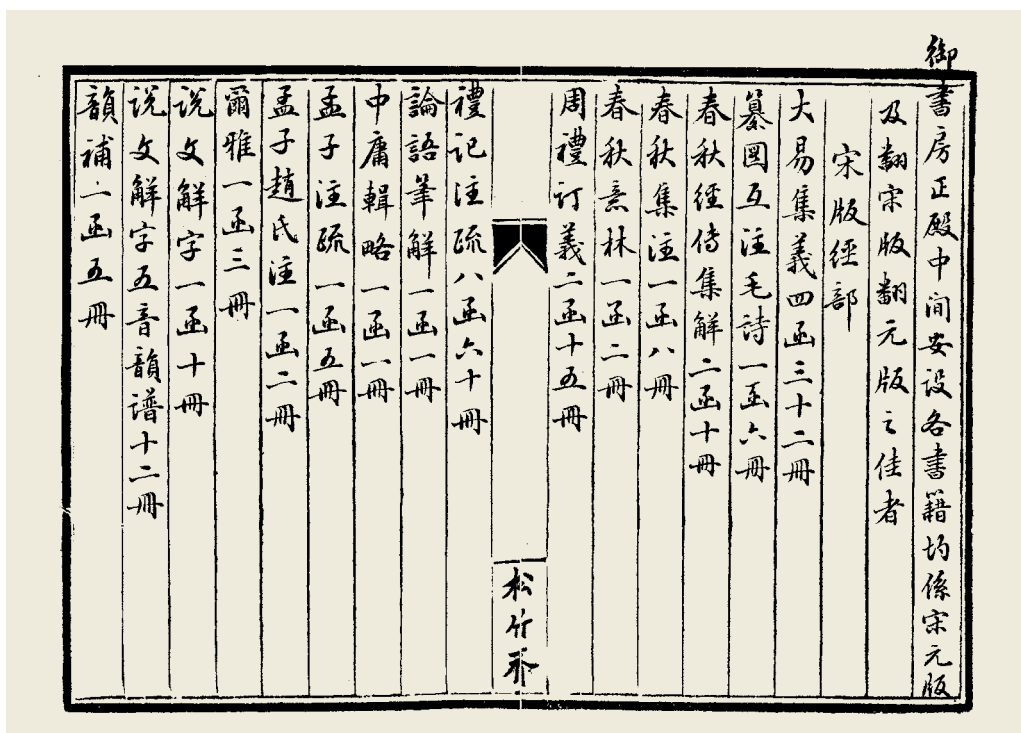 御書房正殿中間安設各書籍均係宋元版
及翻宋版翻元版之佳者
宋版經部
大易集義四函三十二冊
纂圖互注毛詩一函六冊
春秋經傳集解二函十冊
春秋集注一函八冊
春秋意林一函二冊
周禮訂義二函十五冊
松竹齋
禮記注疏八函六十冊
論語筆解一函一冊
中庸輯略一函一冊
孟子注疏一函五冊
孟子趙氏注一函二冊
爾雅一函三冊
說文解字一函十冊
說文解字五音韻譜十二冊
韻補一函五冊